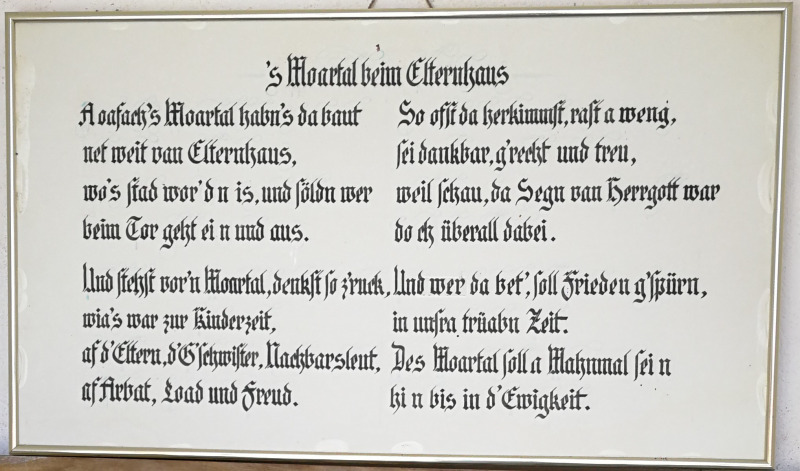 's Moartal beim Elternhaus
A oafach's Moartal habn's da baut
net weit van Elternhaus,
wo's stad wor'dn is, und söldn wer
beim Tor geht ein und aus.
Und stehst vor'n Moartal, denkst so z'ruck,
wia's war zur Kinderzeit,
af d'Eltern, d'G'schwister, Nachbarsleut,
af Arbat, Load und Freud.
So oft da herkimmst, rast a weng,
sei dankbar, g'recht und treu,
weil schau, da Segn van Herrgott war
do ch überall dabei.
Und wer da bet', soll Frieden g'spürn,
in unsra trüabn Zeit.
Des Moartal soll a Mahnmal sein
hin bis in d'Ewigkeit.